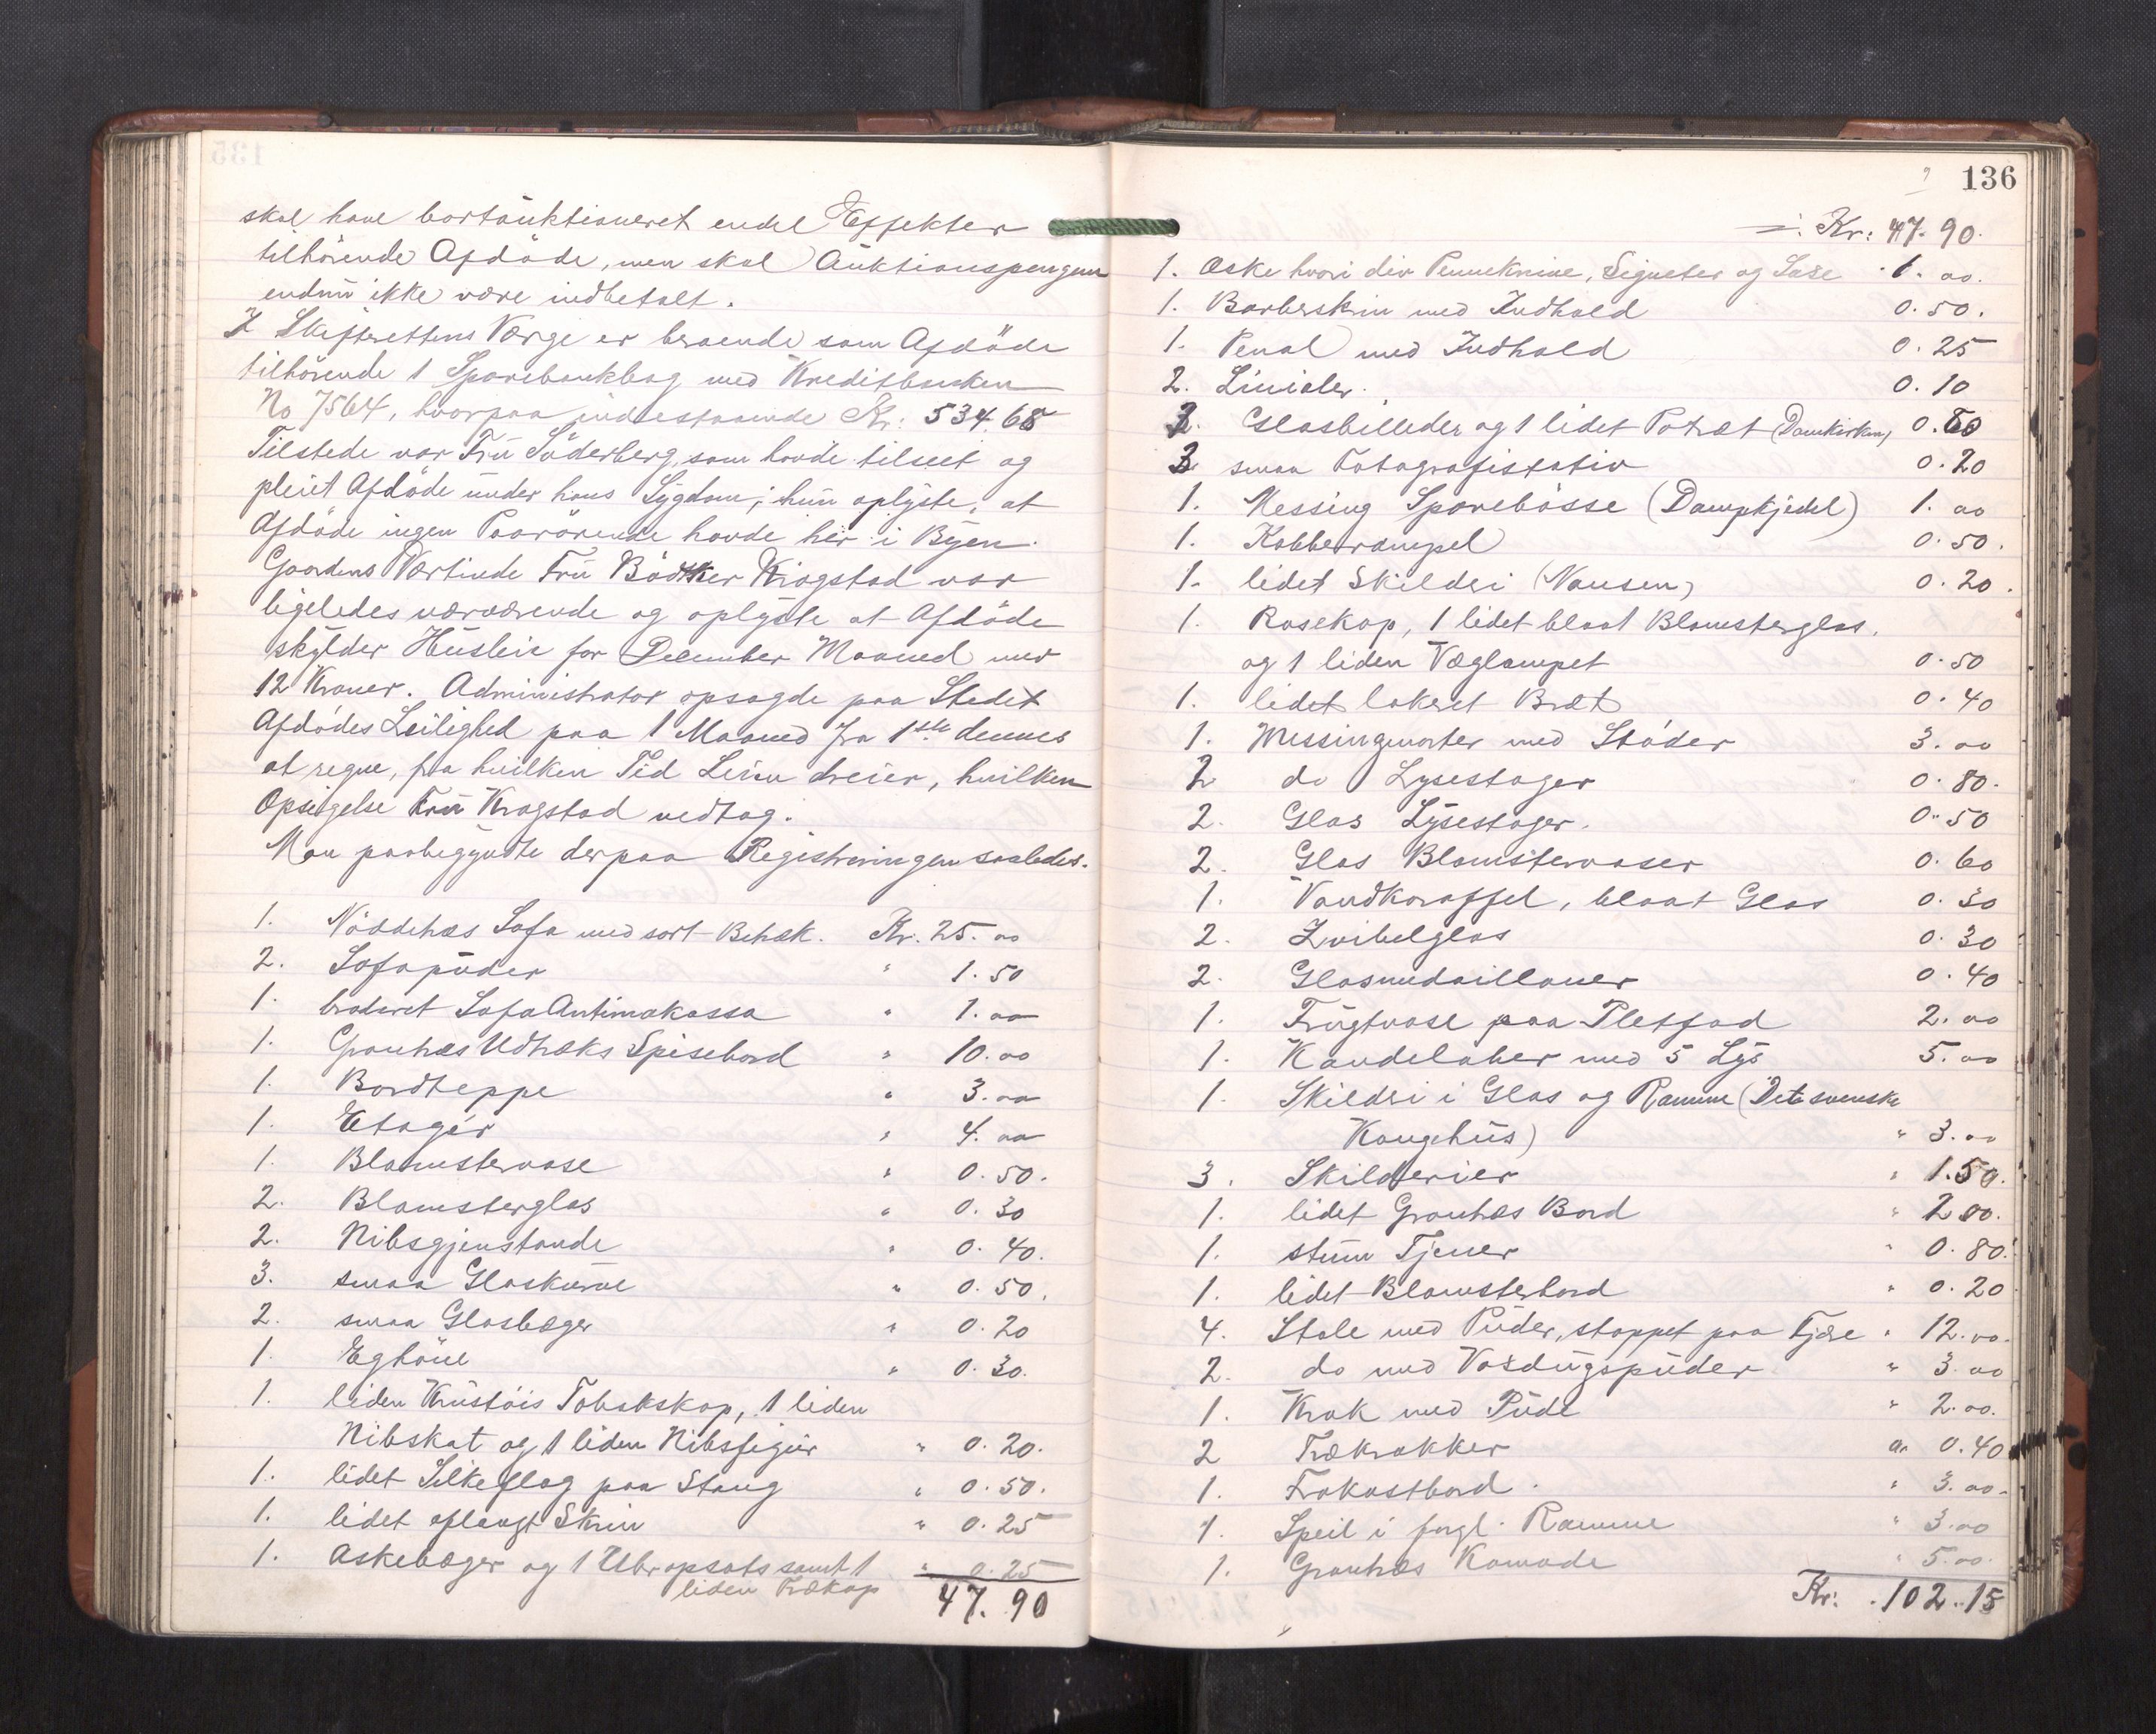 skal have bortauktioneret endel Effekter
tilhörende Afdöde, men skal Auktionspengene
endnu ikke være indbetalt.
I Skifterettens Værge er beroende som Afdöde
tilhörende 1 Sparebankbog med Kreditbanken
No 7564, hvorpaa indestaaende Kr: 534.68
Tilstede var Fru Söderberg, som havde tilseet og
pleiet Afdöde under hans Sygdom; hun oplyste, at
Afdöde ingen Paarörende havde her i Byen.
Gaardens Værtinde Fru Bödtker Krogstad var
ligeledes nærværende og oplyste at Afdöde
skylder Husleie for December Maaned med
12 Kroner. Administrator opsagde paa Stedet
Afdödes Leilighed paa 1 Maaned fra 1ste dennes
at regne, fra hvilken Tid Leien dreier, hvilken
Opsigelse Fru Krogstad vedtog.
Man paabegyndte derpaa Registreringen saaledes.
1. Nöddetræs Sofa med sort Betræk. Kr. 25.00
2. Sofapuder " 1.50
1. broderet Sofa Antimakassa " 1.00
1. Grantræs Udtræks Spisebord " 10.00
1. Bordteppe " 3.00
1. Etagér " 4.00
1. Blomstervase " 0.50.
2. Blomsterglas " 0.30
2. Nibsgjenstande " 0.40.
3. smaa Glaskurve " 0.50.
2. smaa Glasbæger " 0.20
1. Eghöne " 0.30.
1. liden Krustöis Tobakskop, 1 liden
Nibskat og 1 liden Nibsfigur " 0.20.
1. lidet Silkeflag paa Stang " 0.50.
1. lidet aflangt Skrin " 0.25
1. Askebæger og 1 Uhropsats samt 1 " 0.25
liden Trækop
47.90
136
÷ Kr: 47.90.
1. Æske hvori div Penneknive, Signeter og Saxe 1.00.
1. Barberskrin med Indhold 0.50.
1. Penal med Indhold 0.25
2. Linialer. 0.10
2. Glasbilleder og 1 lidet Potræt (Domkirken) 0.60
3 smaa Fotografistativ 0.20
1. Messing Sparebösse (Dampkjedel) 1.00
1. Kobberampel 0.50.
1. lidet Skilderi (Nansen) 0.20.
1. Rosekop, 1 lidet blaat Blomsterglas,
og 1 liden Væglampet 0.50
1. lidet lakeret Bræt 0.40
1. Messingmorter med Stöder 3.00
2 do Lysestager 0.80.
2. Glas Lysestager. 0.50
2. Glas Blomstervaser 0.60
1. Vandkaraffel, blaat Glas 0.30
2. Zvibelglas 0.30
2. Glasmedailloner 0.40
1. Frugtvase paa Pletfod 2.00
1. Kandelaber med 5 Lys 5.00
1. Skilderi i Glas og Ramme (Det svenske
Kongehus) " 3.00
3. Skilderier " 1.50.
1. lidet Grantræs Bord " 2.00.
1. stum Tjener " 0.80.
1. lidet Blomsterbord " 0.20
4. Stole med Puder, stoppet paa Fjære " 12.00.
2. do med Voxdugspuder " 3.00
1. Krak med Pude " 2.00.
2 Trækrakker " 0.40
1. Frokostbord. " 3.00.
1. Speil i forgl. Ramme " 3.00
1. Grantræs Komode " 5.00.
Kr: 102.15